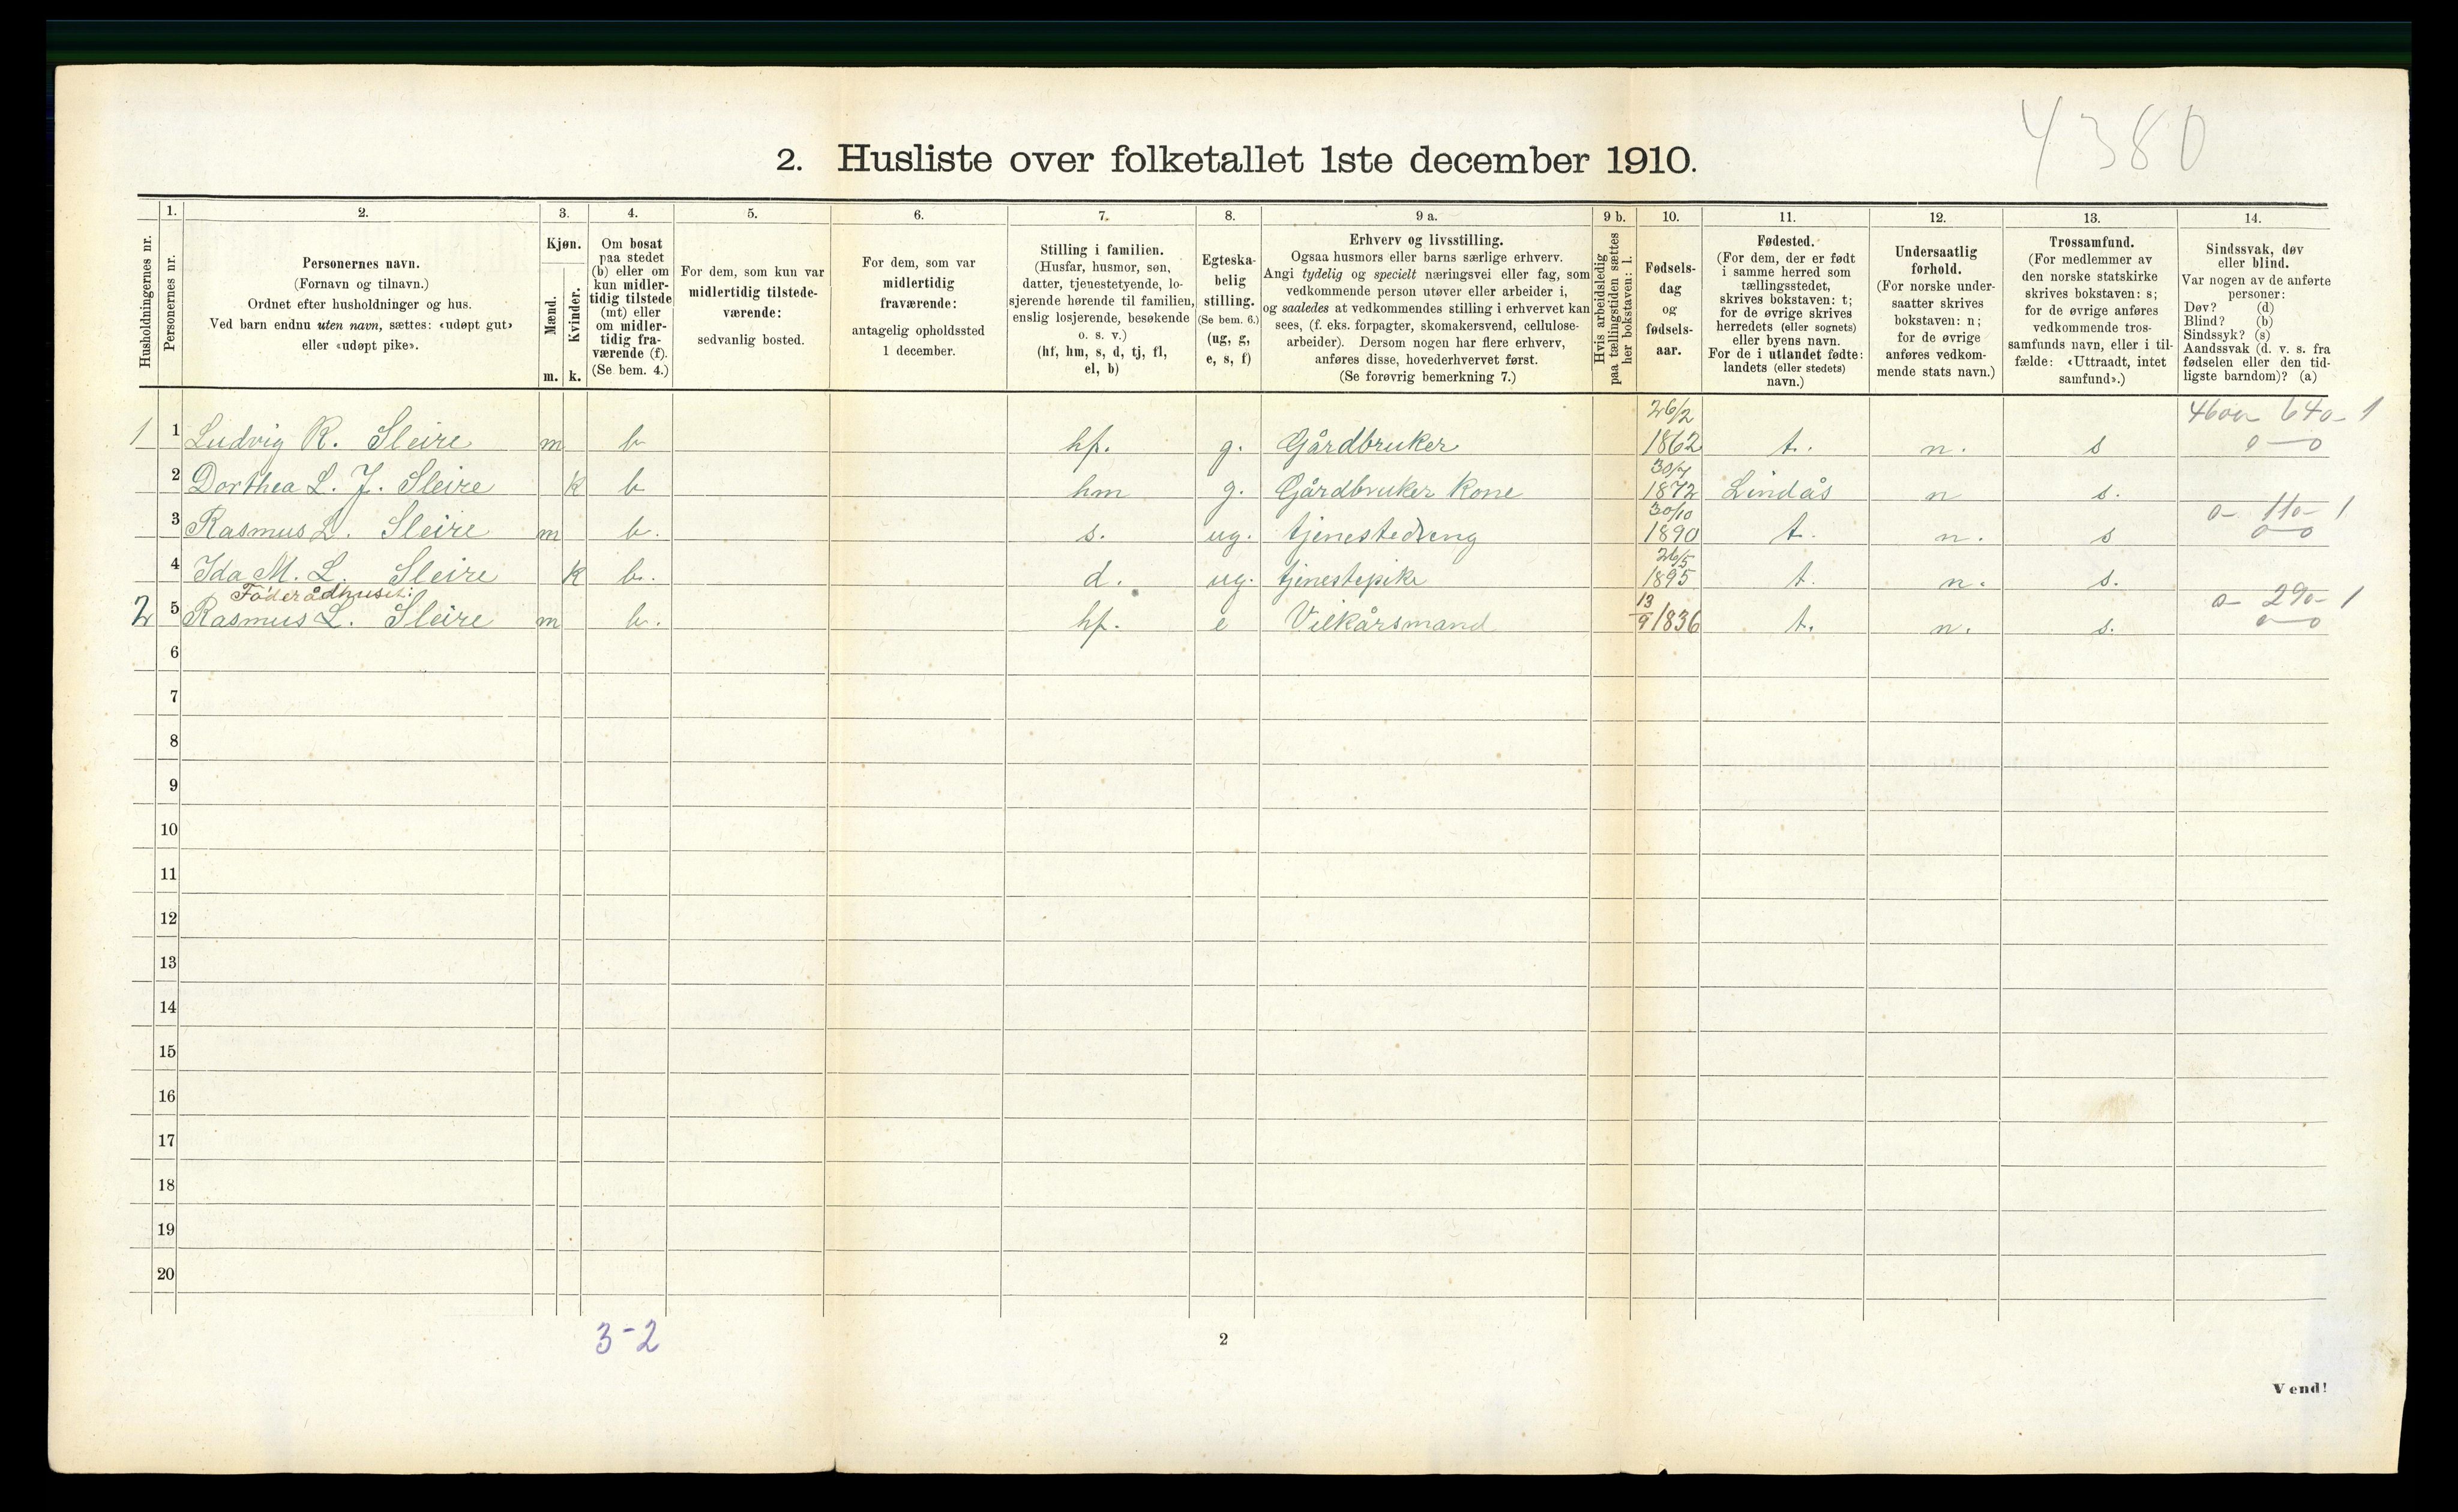 4380
2. Husliste over folketallet 1ste december 1910.
Husholdningernes nr.
1.
Personernes nr.
2.
Personernes navn.
(Fornavn og tilnavn.)
Ordnet efter husholdninger og hus.
Ved barn endnu uten navn, sættes: «udøpt gut»
eller «udøpt pike».
3.
Kjøn.
Mænd.
Kvinder.
m. k.
4.
Om bosat
paa stedet
(b) eller om
kun midler-
tidig tilstede
(mt) eller
om midler-
tidig fra-
værende (f).
(Se bem. 4.)
5.
For dem, som kun var
midlertidig tilstede-
værende:
sedvanlig bosted.
6.
For dem, som var
midlertidig
fraværende:
antagelig opholdssted
1 december.
7.
Stilling i familien.
(Husfar, husmor, søn,
datter, tjenestetyende, lo-
sjerende hørende til familien,
enslig losjerende, besøkende
o. s. v.)
(hf, hm, s, d, tj, fl,
el, b)
8.
Egteska-
belig
stilling.
(Se bem. 6.)
(ug, g,
e, s, f)
9 a.
Erhverv og livsstilling.
Ogsaa husmors eller barns særlige erhverv.
Angi tydelig og specielt næringsvei eller fag, som
vedkommende person utøver eller arbeider i,
og saaledes at vedkommendes stilling i erhvervet kan
sees, (f. eks. forpagter, skomakersvend, cellulose-
arbeider). Dersom nogen har flere erhverv,
anføres disse, hovederhvervet først.
(Se forøvrig bemerkning 7.)
9 b.
Hvis arbeidsledig
paa tællingstiden sættes
her bokstaven: l.
10.
Fødsels-
dag
og
fødsels-
aar.
11.
Fødested.
(For dem, der er født
i samme herred som
tællingsstedet,
skrives bokstaven: t;
for de øvrige skrives
herredets (eller sognets)
eller byens navn.
For de i utlandet fødte:
landets (eller stedets)
navn.)
12.
Undersaatlig
forhold.
(For norske under-
saatter skrives
bokstaven: n;
for de øvrige
anføres vedkom-
mende stats navn.)
13.
Trossamfund.
(For medlemmer av
den norske statskirke
skrives bokstaven: s;
for de øvrige anføres
vedkommende tros-
samfunds navn, eller i til-
fælde: «Uttraadt, intet
samfund».)
14.
Sindssvak, døv
eller blind.
Var nogen av de anførte
personer:
Døv? (d)
Blind? (b)
Sindssyk? (s)
Aandssvak (d. v. s. fra
fødselen eller den tid-
ligste barndom)? (a)
1 1 Ludvig R. Sleire m b hf. g. Gårdbruker 26/2 1862 t. n. s 640- 1
0-0
2 Dorthea L. J. Sleire k b hm g. Gårdbruker Kone 1872 Lindås n s.
3 Rasmus L. Sleire m b. s. ug. tjenestedreng 30/10 1890 t. n. s 0- 110- 1
0-0
4 Ida M. L. Sleire k b. d. ug. tjenestepike 26/5 1895 t. n. s.
Föderådhuset:
2 5 Rasmus L. Sleire m b. hf. e Vilkårsmand 13/9 1836 t. n. s. 0- 290- 1
0-0
6
7
8
9
10
11
12
13
14
15
16
17
18
19
20
3-2
2
Vend!